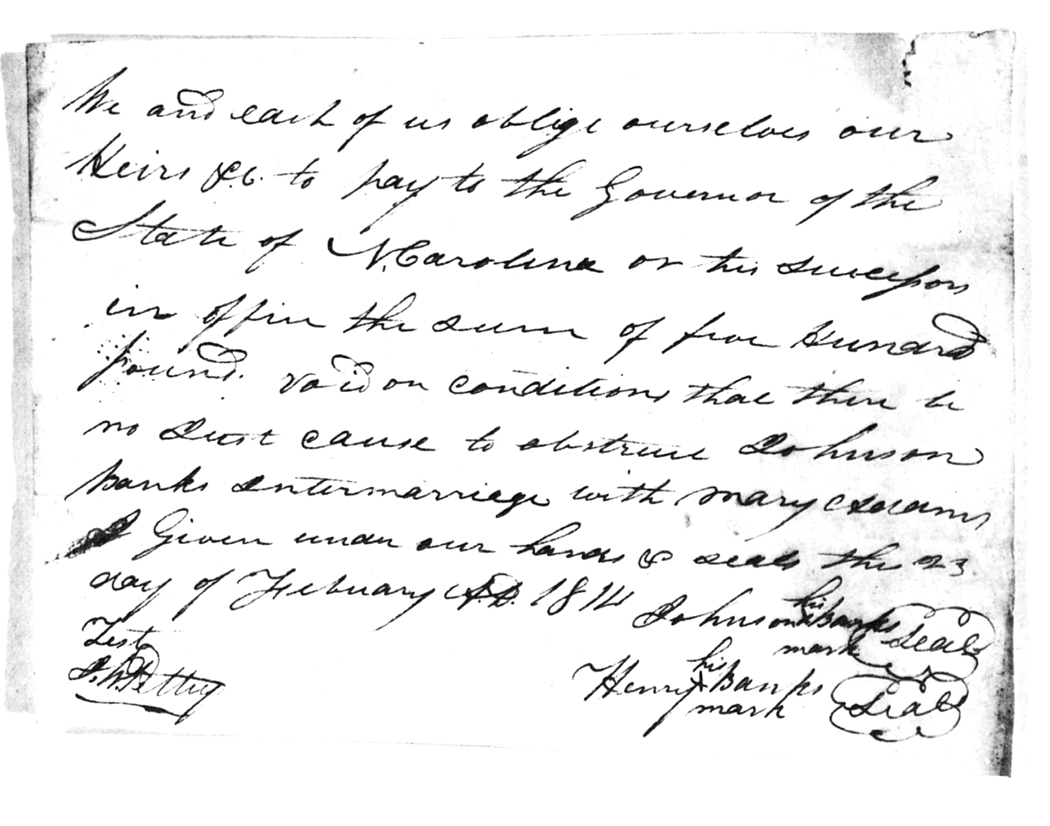 We and each of us oblige ourselves our
Heirs &c. to pay to the Governor of the
State of N. Carolina or his successors
in office the sum of five Hundred
pound. void on conditions that there be
no Just cause to obstruct Johnson
Banks Intermarriage with Mary Adams
Given under our hands & seals the 23
day of Febuary A.D. 1814
Johnson his x Banks mark Seal
Test
Henry his x Banks mark Seal